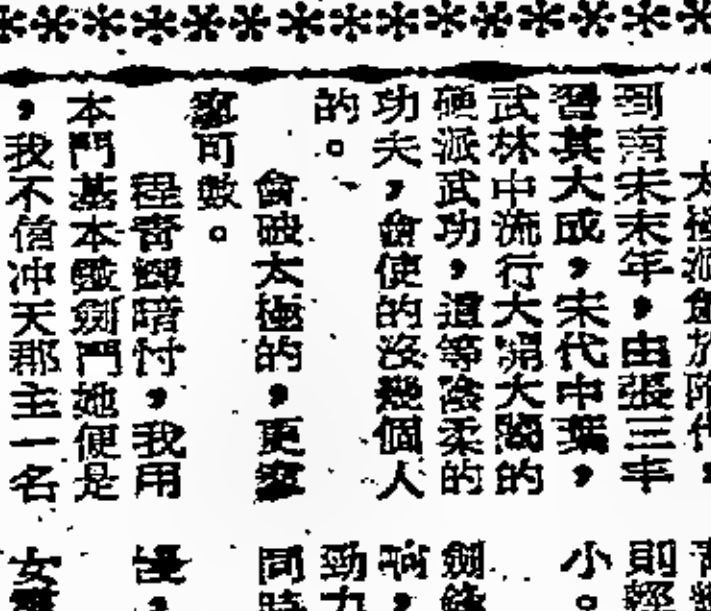 太極派創於隋代，
到南宋末年，由張三丰
習其大成，宋代中葉，
武林中流行大開大闔的
硬派武功，這等陰柔的
功夫，會使的沒幾個人
的。
會破太極的，更寥
寥可數。
程青暗忖，我用
本門基本劍門她便是
，我不信冲天郡主一名
則經
小。
劍鋒
吶，
勁力
同時
女